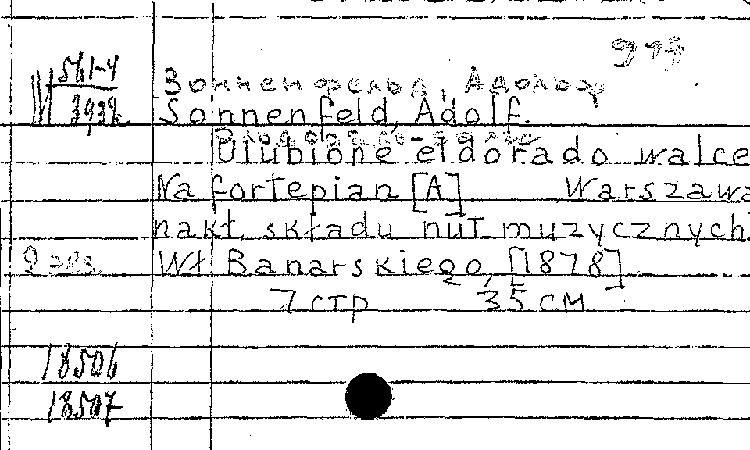 М 561-4
3938
Зонненфельд, Адольф
Sonnenfeld, Adolf.
Ulubione eldorado walce
Na fortepian [A] Warszawa
nakł. składu nut muzycznych
Wł. Banarskiego, [1878]
2 экз.
7 стр 35 см
18506
18507